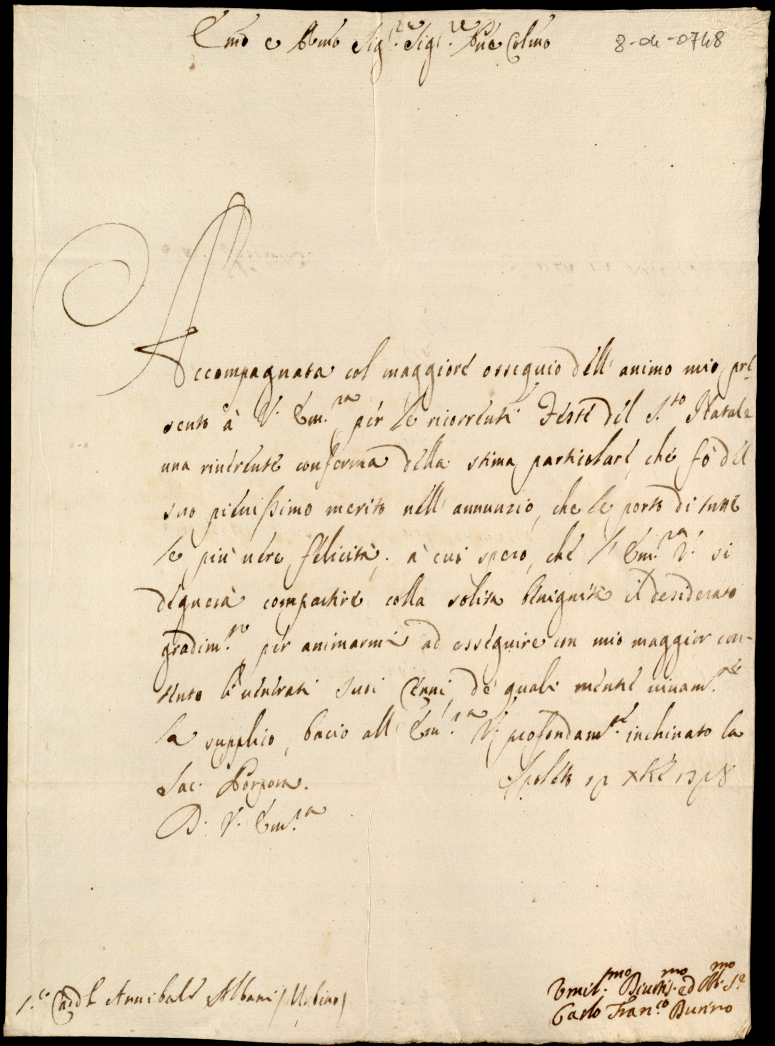 Emo e Rmo Sig.re Sig.re Prē Colmo
8-04-0748
Accompagnata col maggiore ossequio dell'animo mio pre
sento à V. Em.za per le ricorrenti Feste del S.to Natale
una riverente conferma della stima particolare, che fò del
suo pienissimo merito nell'annunzio, che le porto di tutte
le più vere felicità; à cui spero, che l'Em.za V. si
degnerà compartire colla solita benignità il desiderato
gradim.to per animarmi ad esseguire con mio maggior con-
tento li venerati suoi Cenni, de quali mentre vivam.te
la supplico, bacio all'Em.za V. profondam.te inchinato la
Sac. Porpora.
Spoleto 17 Xbre
D. V. Em.za
S.r Card.l Annibale Albani / Urbino /
Umil.mo Divotis.mo ed Obl.mo S.e
Carlo Fran.co